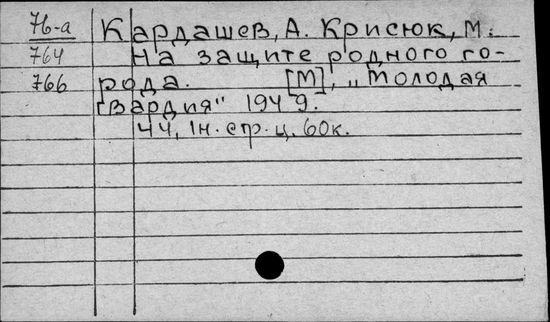 76-а Кардашев, А. Крисюк, М.
764 На защите родного го-
766 рода. [М], „Молодая
гвардия" 1949.
44, 1н. стр. ц. 60к.